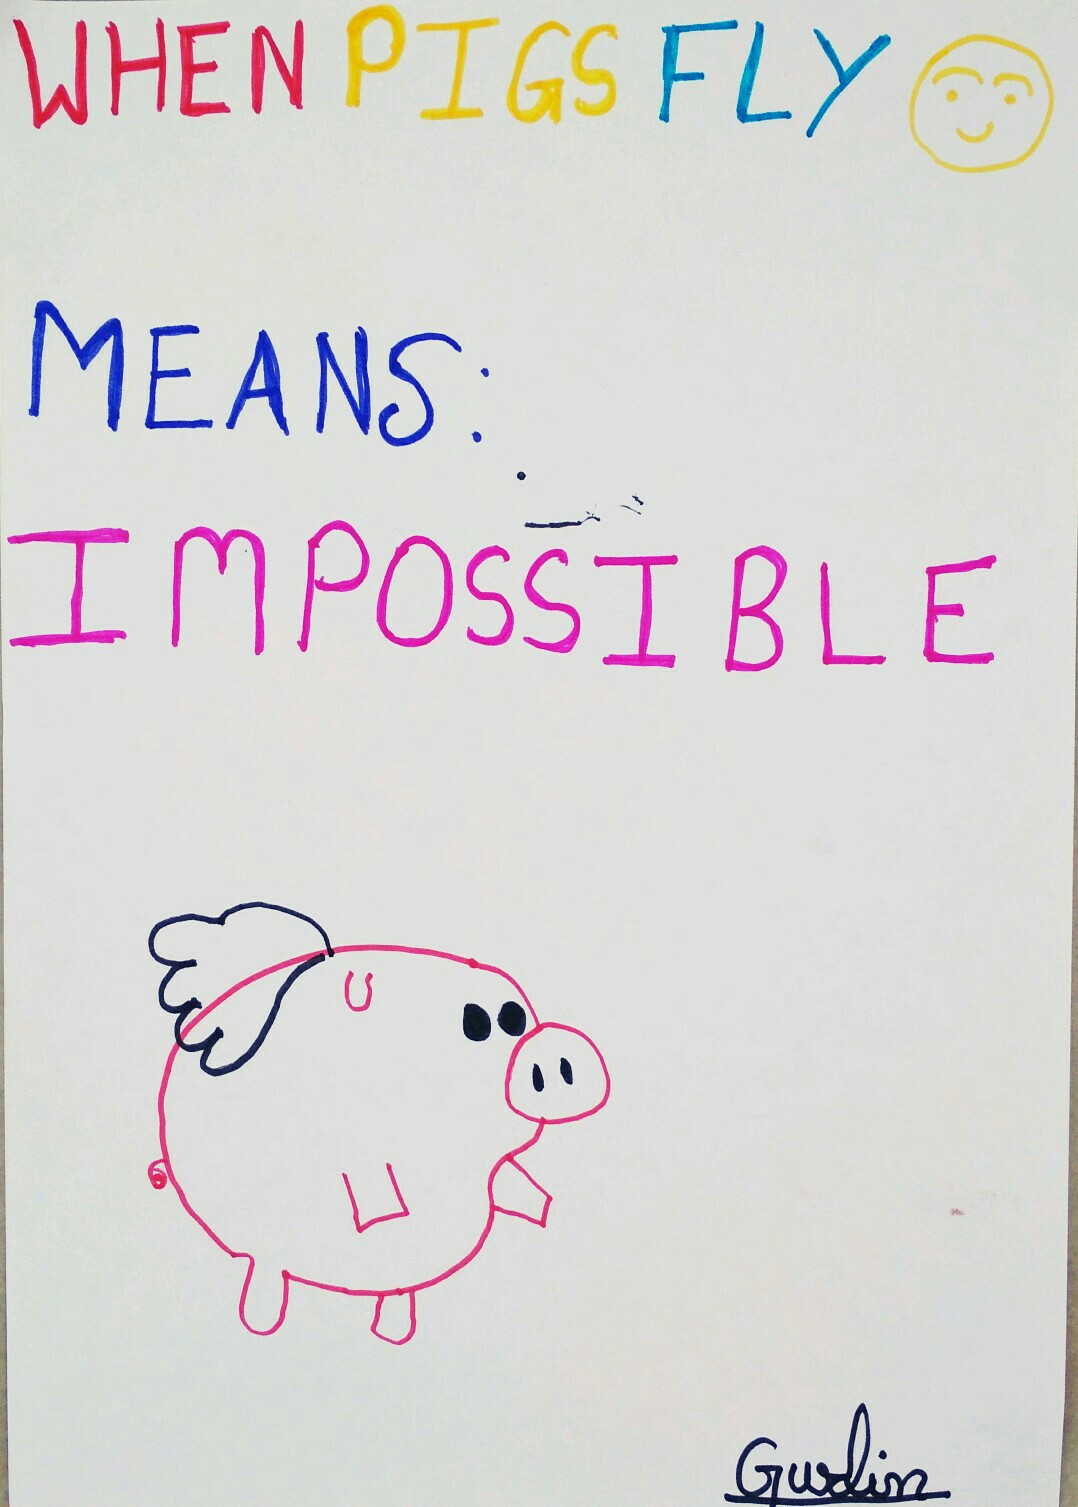 WHEN PIGS FLY
MEANS:
IMPOSSIBLE